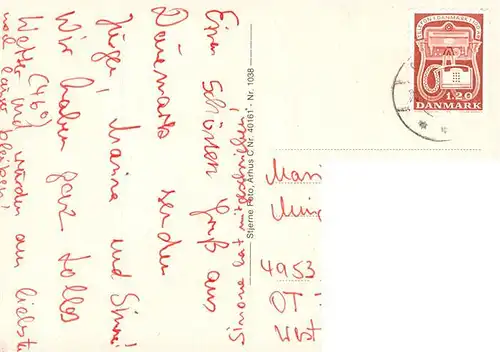 Einen schönen Gruß aus
Dänemark senden
Jürgen, Marina und Simone!
Wir haben ganz tolles
Wetter (46°) und würden am liebsten
noch länger bleiben!
Simone hat mitgeschrieben!
Stjerne Foto, Århus C Nr. 40161 - Nr. 1038
TELEFON I DANMARK
1.20
DANMARK
4953
OT
West